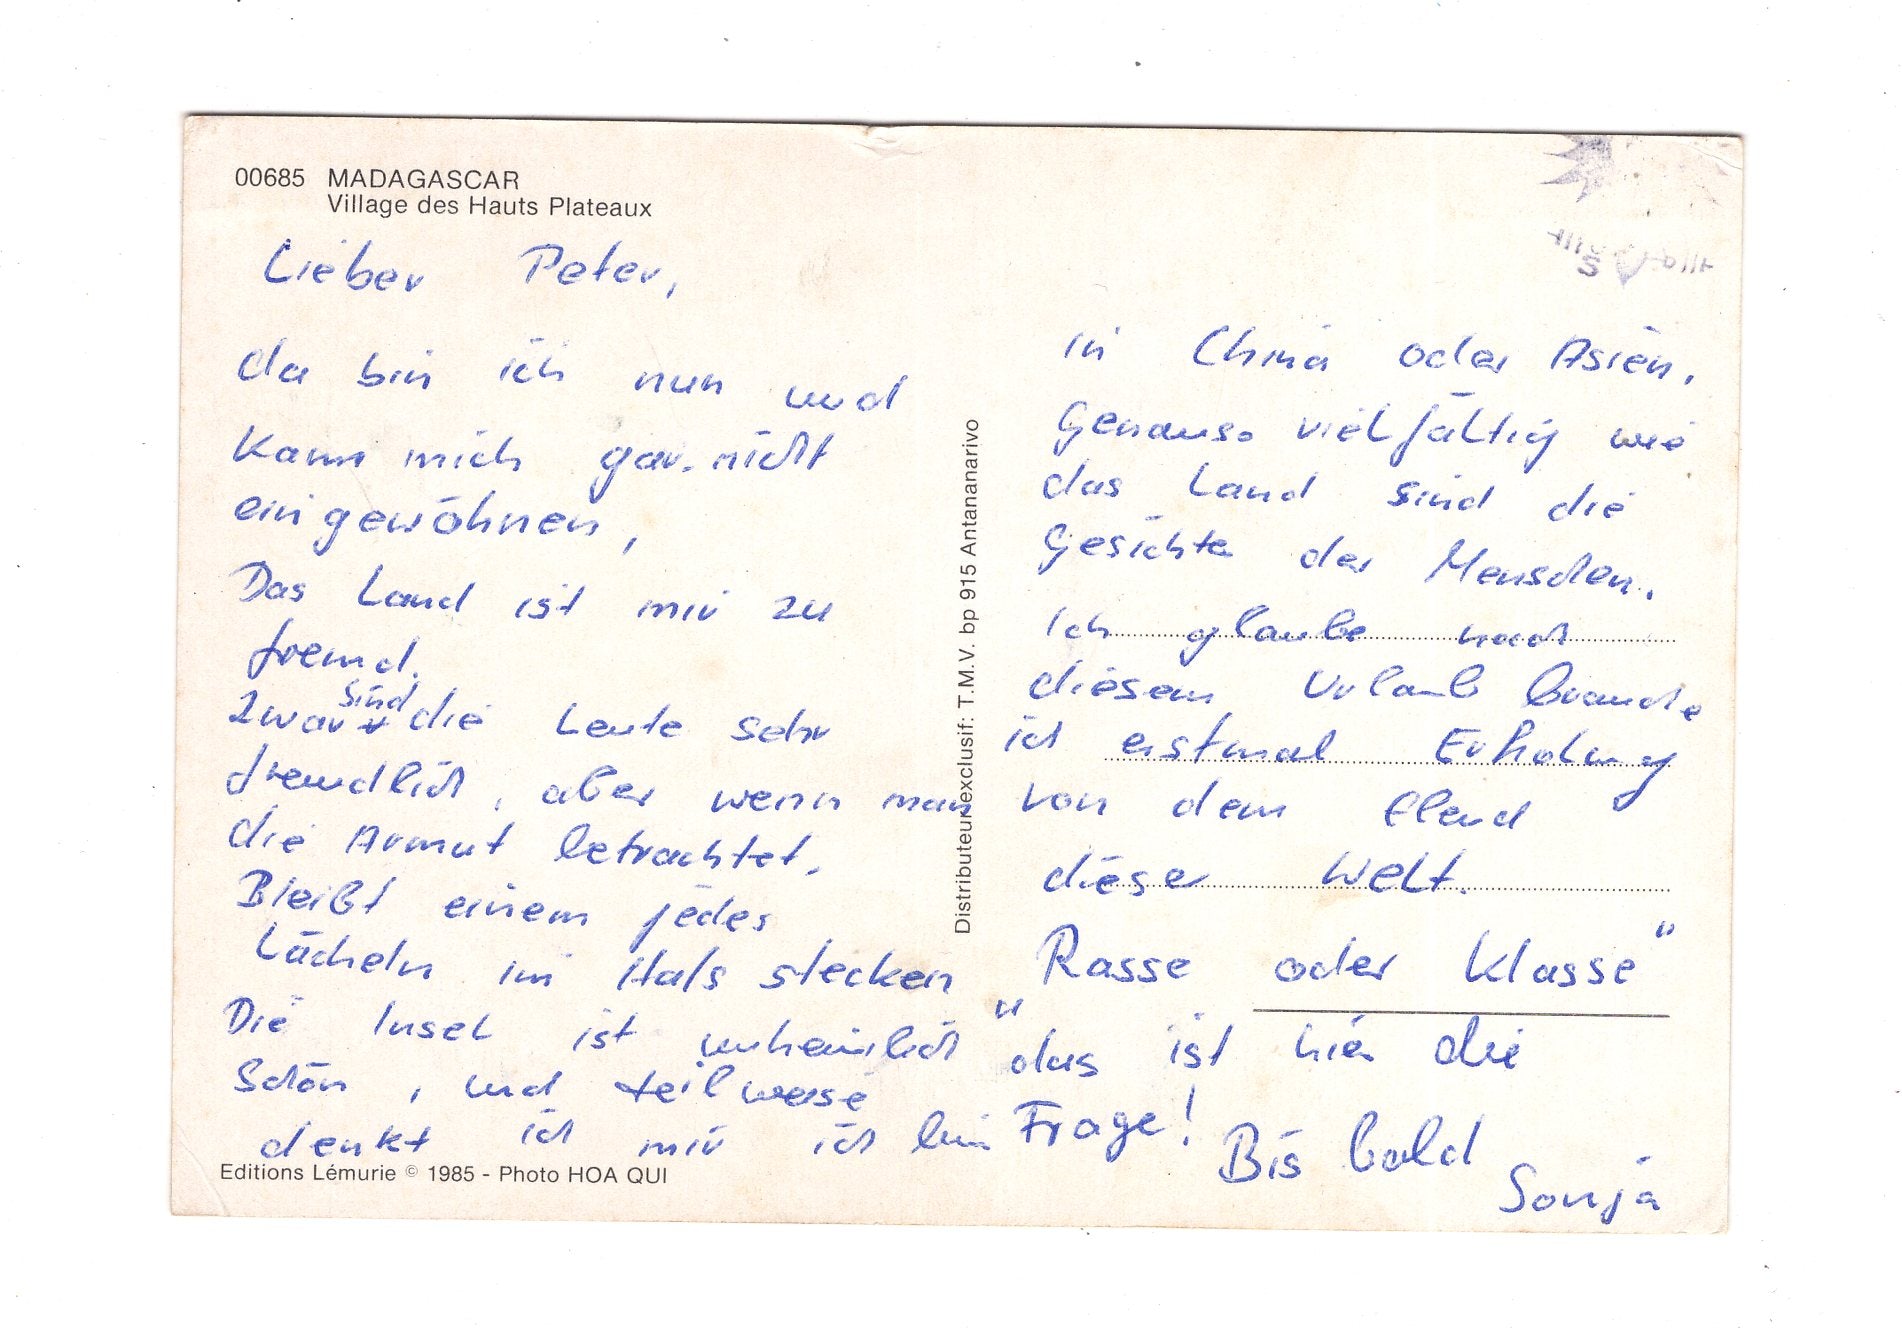 00685 MADAGASCAR
Village des Hauts Plateaux
Lieber Peter,
da bin ich nun und
kann mich gar nicht
eingewöhnen,
Das Land ist mir zu
fremd.
Zwar sind die Leute sehr
freundlich, aber wenn man
die Armut betrachtet,
Bleibt einem jedes
Lächeln im Hals stecken
Die Insel ist unheimlich
Schön, und teilweise
denkt ich mir ich bin
Editions Lémurie © 1985 - Photo HOA QUI
Distributeur exclusif: T.M.V. bp 915 Antananarivo
in China oder Asien.
Genauso vielfältig wie
das Land sind die
Gesichte der Menschen.
Ich glaube nach
diesem Urlaub brauche
ich erstmal Erholung
von dem Elend
dieser Welt.
"Rasse oder Klasse"
das ist hier die
Frage!
Bis bald
Sonja